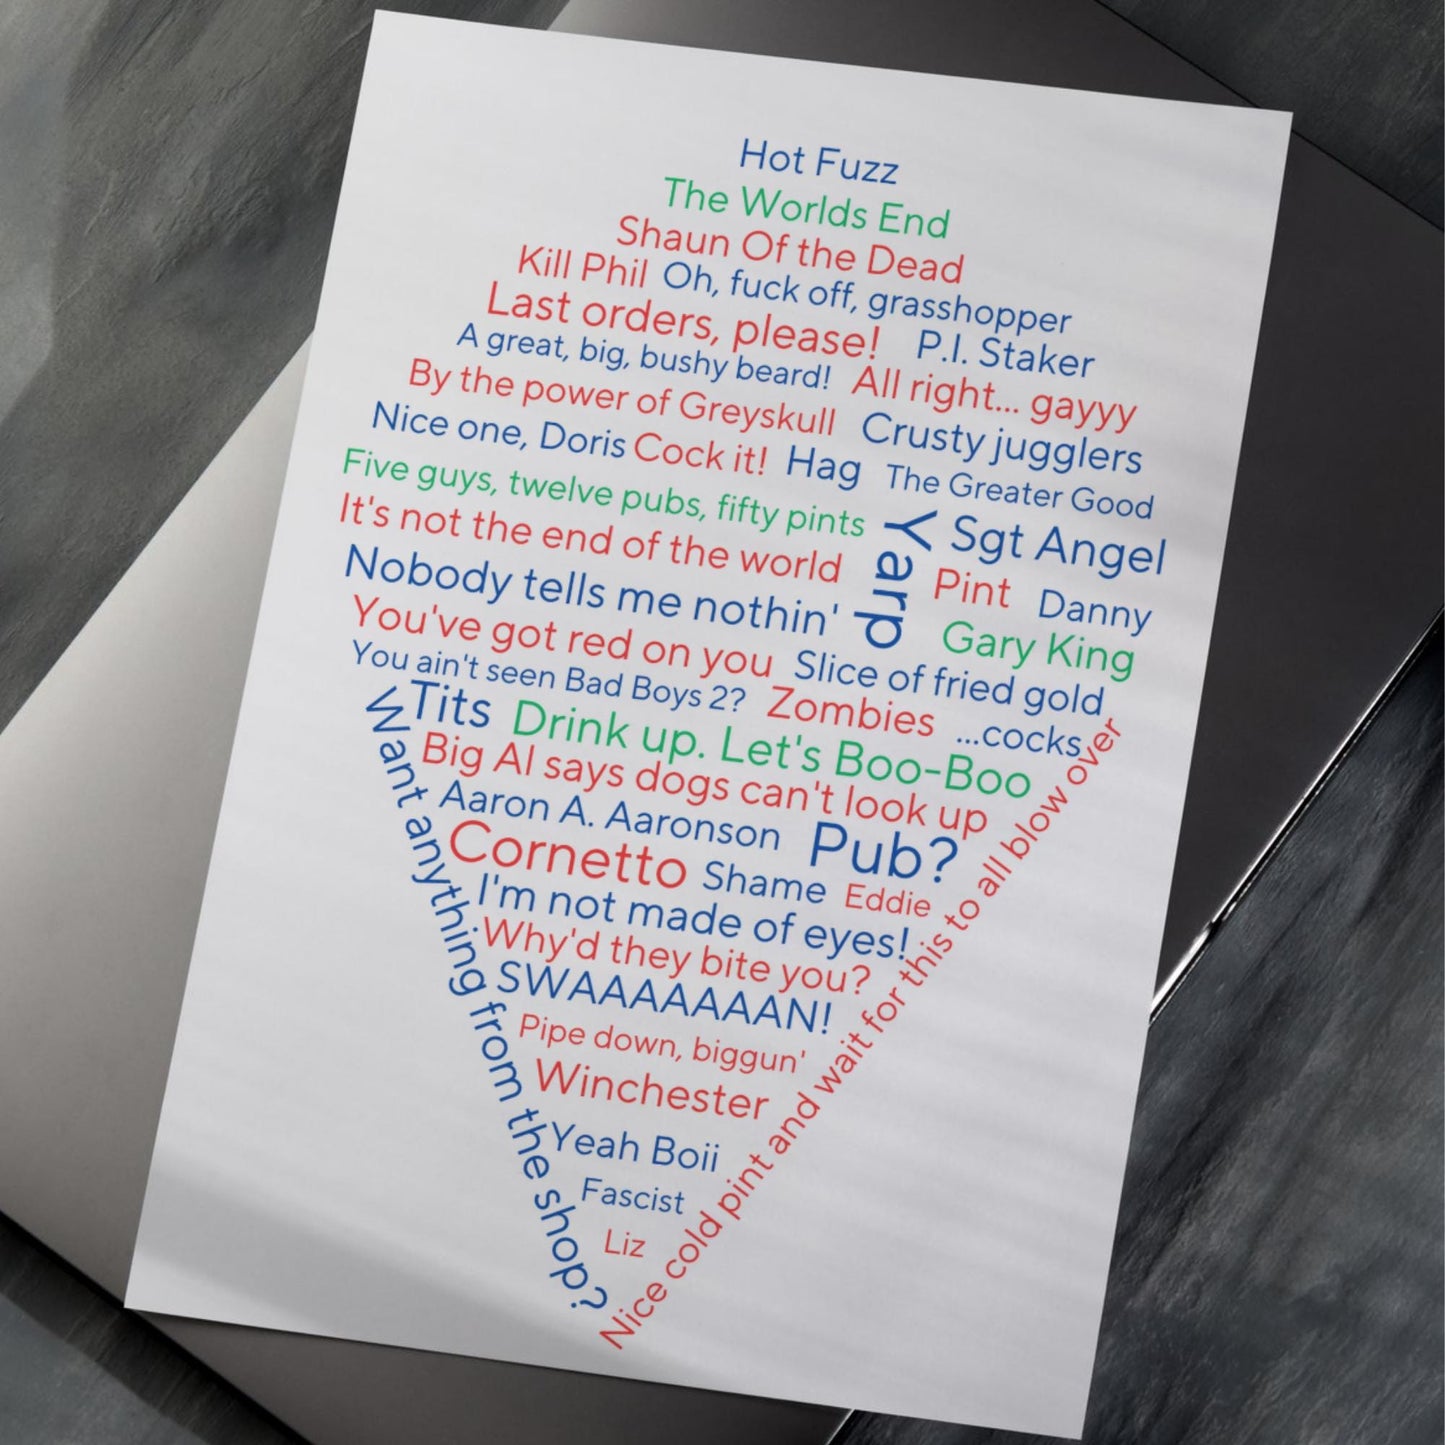 Hot Fuzz
The Worlds End
Shaun Of the Dead
Kill Phil Oh, fuck off, grasshopper
Last orders, please! P.I. Staker
A great, big, bushy beard! All right... gayyy
By the power of Greyskull Crusty jugglers
Nice one, Doris Cock it! Hag The Greater Good
Five guys, twelve pubs, fifty pints Yarp Sgt Angel
It's not the end of the world Pint Danny
Nobody tells me nothin' Gary King
You've got red on you Slice of fried gold
You ain't seen Bad Boys 2? Zombies ...cocks
Tits Drink up. Let's Boo-Boo
Big Al says dogs can't look up
Aaron A. Aaronson Pub?
Cornetto Shame Eddie
I'm not made of eyes!
Why'd they bite you?
SWAAAAAAAN!
Pipe down, biggun'
Winchester
Yeah Boii
Fascist
Liz
Want anything from the shop?
Nice cold pint and wait for this to all blow over